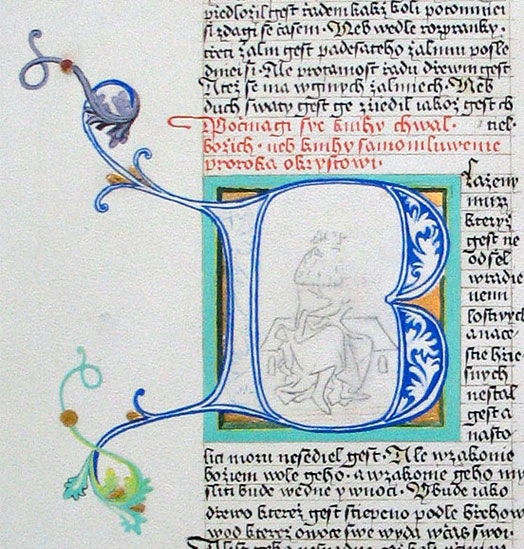 przedlozil gest rzadem kakz koli potomniei
si zdagi se czasem · Neb wedle rozpranky ·
trzeti zalm gest padesateho zalmu posle
dnieisi · Ale protamost rzadu drzewm gest
duch swaty gest ge zrziedil iakoz gest ch
Poczinagi sye knihy chwal · tiel ·
bozich · neb knihy samomluwenie
proroka o krystowi ·
B
lazeny
muz
kteryz
gest ne
odssel
w radie
nemi
lostiwych
a nace
stie hrzie
snych
nestal
gest a
nasto
lici moru nesediel gest · Ale w zakonie
boziem wole geho · a w zakonie geho my
sliti bude wedne y w noci · A bude iako
drzewo kterez gest sstiepeno podle brzehow
wod kterez owoce swe wyda w czas swoi ·